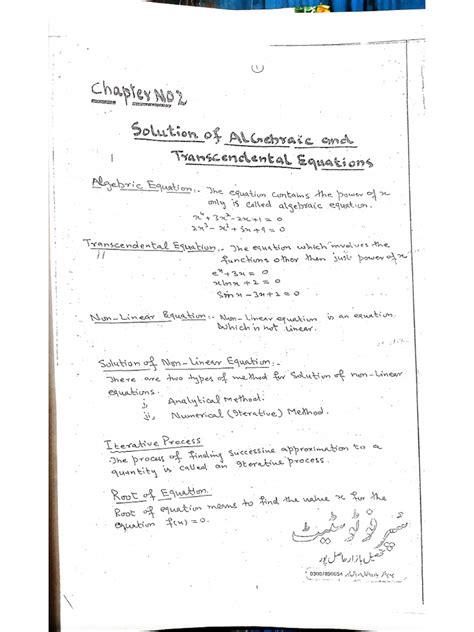 1
Chapter No 2
Solution of Algebraic and
Transcendental Equations
Algebric Equation:- The equation contains the power of x
only is called algebraic equation.
2x³ - x² + 5x + 9 = 0
Transcendental Equation:- The equation which involves the
functions other then just power of x
eˣ + 3x = 0
x ln x + 2 = 0
Sin x - 3x + 2 = 0
Non-Linear Equation:- Non-Linear equation is an equation
which is not linear.
Solution of Non-Linear Equation:-
There are two types of method for Solution of non-Linear
equations.
i, Analytical Method.
ii, Numerical (Iterative) Method.
Iterative Process
The process of finding successive approximation to a
quantity is called an Iterative process.
Root of Equation.
Root of equation means to find the value x for the
equation f(x) = 0.
فوٹو سٹیٹ
تحصیل بازار حاصل پور